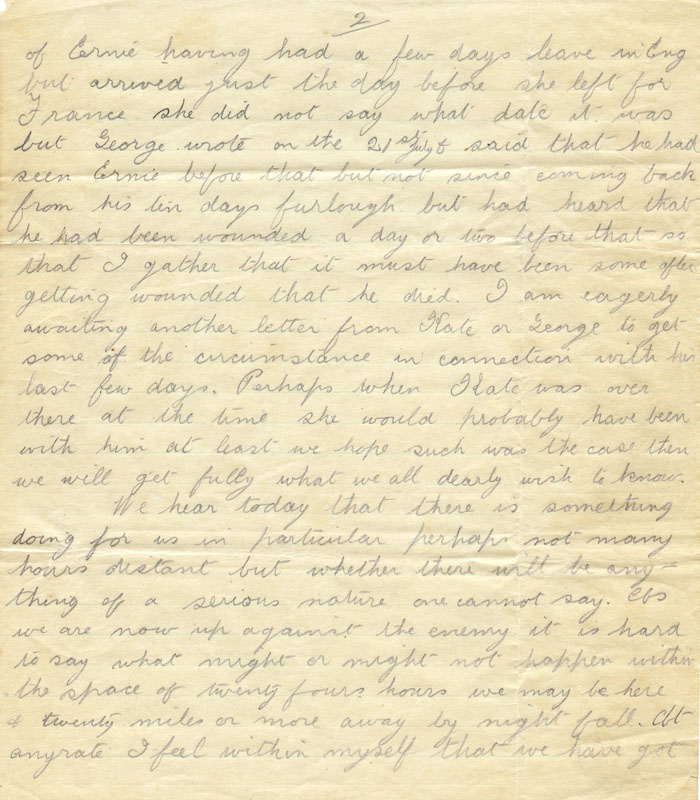 2
of Ernie having had a few days leave in Eng
but arrived just the day before she left for
France she did not say what date it was
but George wrote on the 21st July & said that he had
seen Ernie before that but not since coming back
from his ten days furlough but had heard that
he had been wounded a day or two before that so
that I gather that it must have been some after
getting wounded that he died. I am eagerly
awaiting another letter from Kate or George to get
some of the circumstance in connection with his
last few days. Perhaps when Kate was over
there at the time she would probably have been
with him at least we hope such was the case then
we will get fully what we all dearly wish to know.
We hear today that there is something
doing for us in particular perhaps not many
hours distant but whether there will be any-
thing of a serious nature one cannot say. As
we are now up against the enemy it is hard
to say what might or might not happen within
the space of twenty fours hours we may be here
& twenty miles or more away by night fall. At
anyrate I feel within myself that we have got